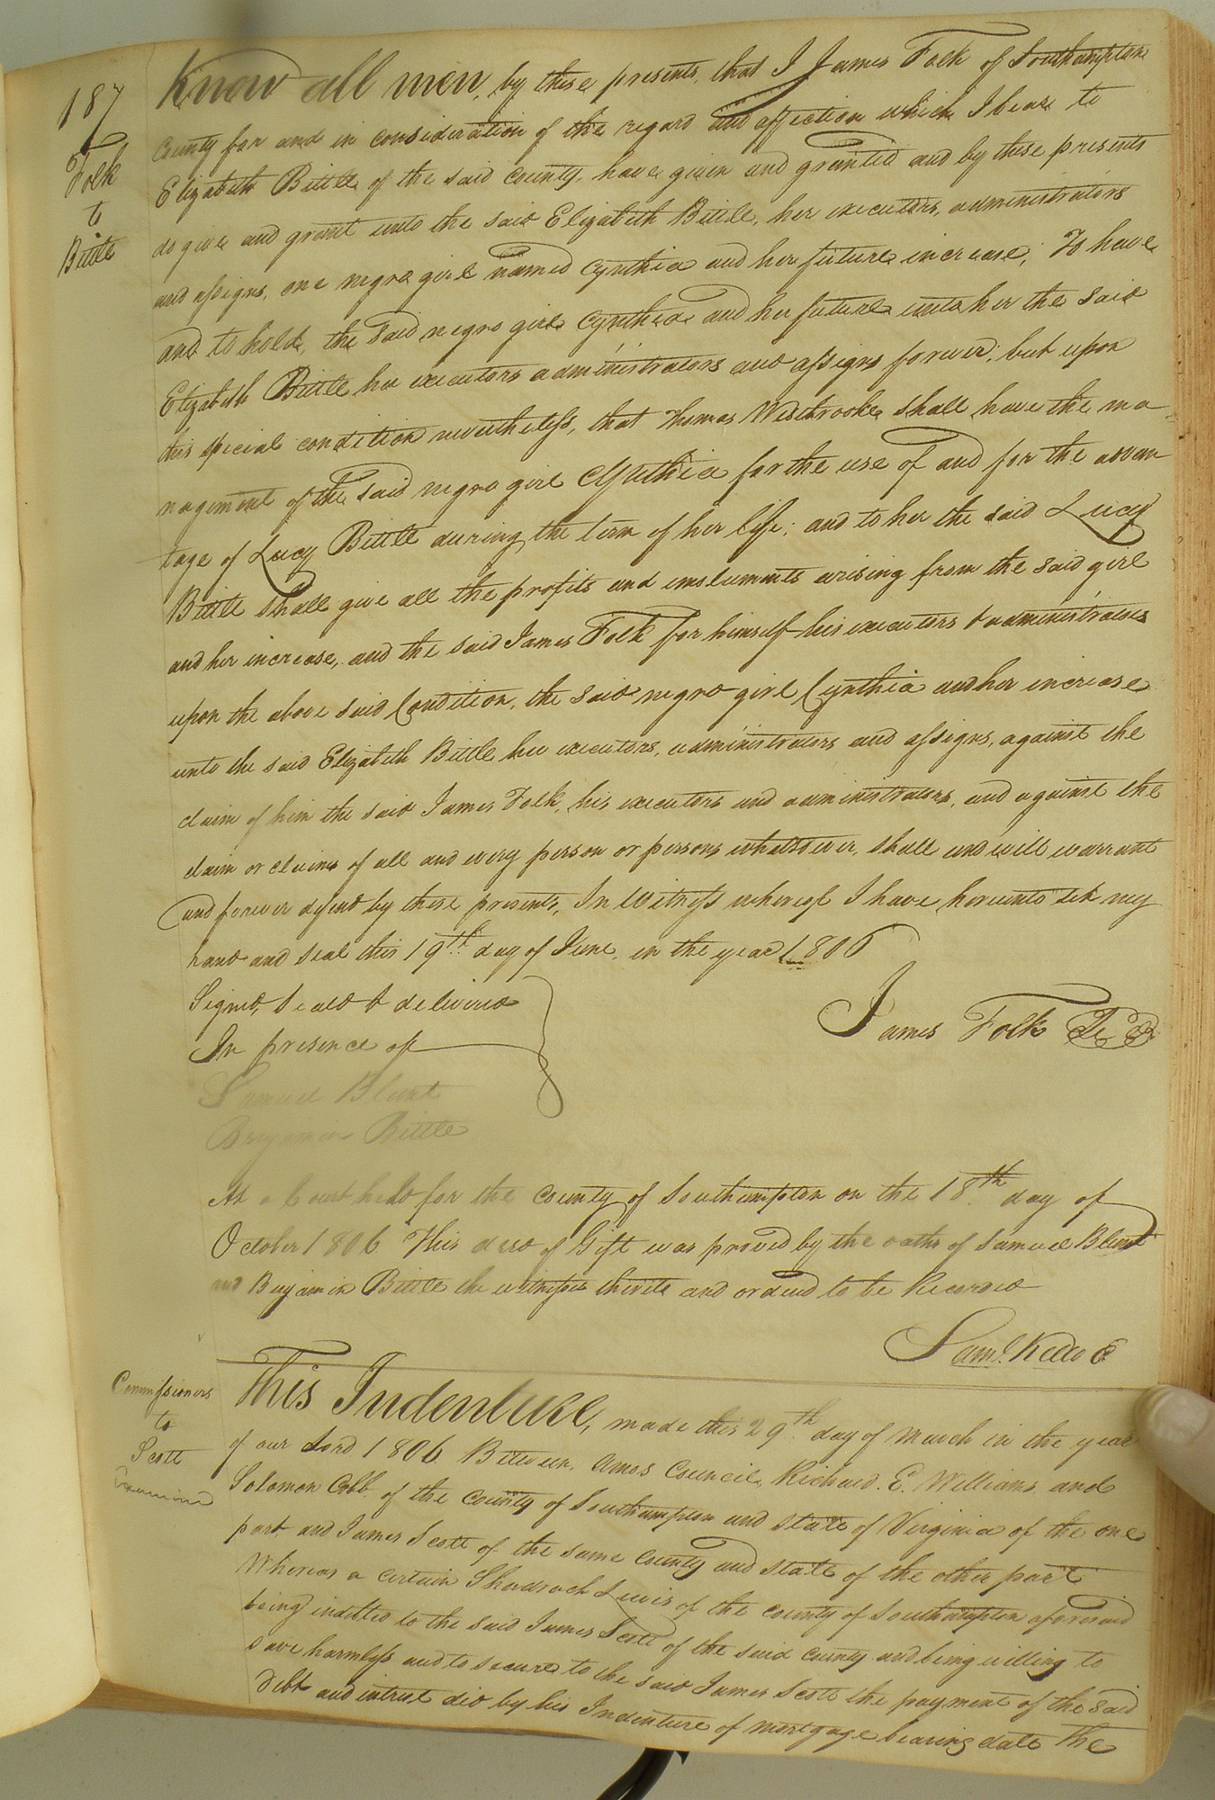 187
Folk
to
Bittle
Know all men, by these presents, that I James Folk of Southampton
County for and in consideration of the regard and affection which I bear to
Elizabeth Bittle of the said county, have given and granted and by these presents
do give and grant unto the said Elizabeth Bittle, her executors, administrators
and assigns, one negro girl named Cynthia and her future increase; To have
and to hold, the said negro girl Cynthia and her future unto her the said
Elizabeth Bittle her executors administrators and assigns forever; but upon
this special condition nevertheless, that Thomas Westbrooke shall have the ma-
nagement of the said negro girl Cynthia for the use of and for the advan
tage of Lucy Bittle during the term of her life; and to her the said Lucy
Bittle shall give all the profits and emoluments arising from the said girl
and her increase, and the said James Folk for himself his executors & administrators
upon the above said Condition, the said negro girl Cynthia and her increase
unto the said Elizabeth Bittle her executors, administrators and assigns, against the
claim of him the said James Folk, his executors and administrators, and against the
claim or claims of all and every person or persons whatsoever, shall and will warrant
and forever defend by these presents, In Witness whereof I have hereunto set my
hand and seal this 19th day of June, in the year 1806
Signed, Sealed & delivered
In presence of
James Folk
Samuel Blunt
Benjamin Bittle
At a Court held for the County of Southampton on the 18th day of
October 1806 This deed of Gift was proved by the oaths of Samuel Blunt
and Benjamin Bittle the witnesses thereto and ordered to be Recorded
Saml. Kello C
Commissioners
to
Scott
Examined
This Indenture, made this 29th day of March in the year
of our Lord 1806 Between Amos Council, Richard. E. Williams and
Solomon Cobb of the County of Southampton and state of Virginia of the one
part and James Scott of the same county and state of the other part
Whereas a certain Shadrach Lewis of the county of Southampton aforesaid
being indetted to the said James Scott of the said county and being willing to
save harmless and to secure to the said James Scott the payment of the said
Debt and intrest did by his Indenture of mortgage bearing date the